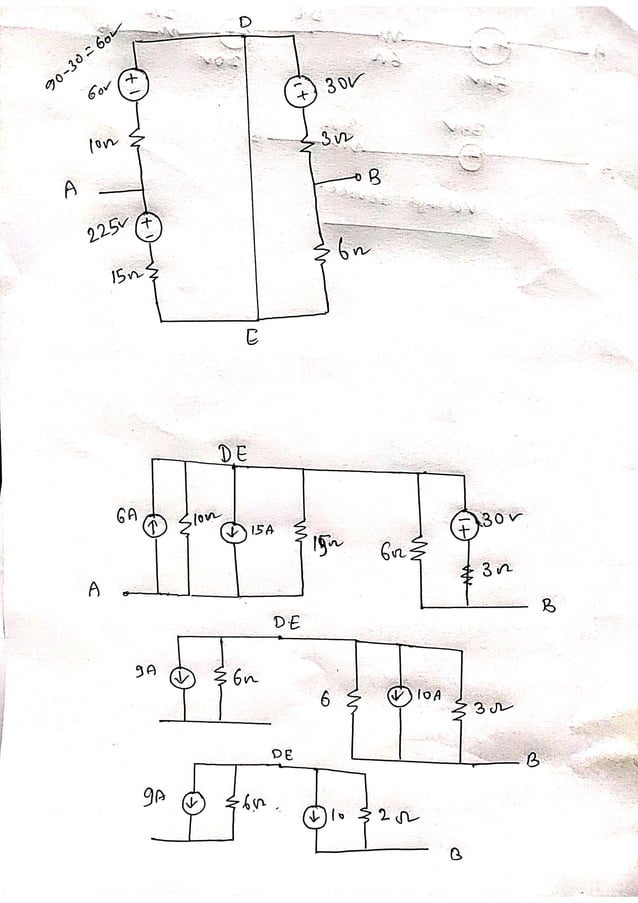 D
90-30=60v
60v
+
-
-
+
30v
10Ω
3Ω
A
B
225v
+
-
6Ω
15Ω
E
DE
6A
10Ω
15A
15Ω
6Ω
-
+
30v
3Ω
A
B
DE
9A
6Ω
6
10A
3Ω
B
DE
9A
6Ω
10
2Ω
B